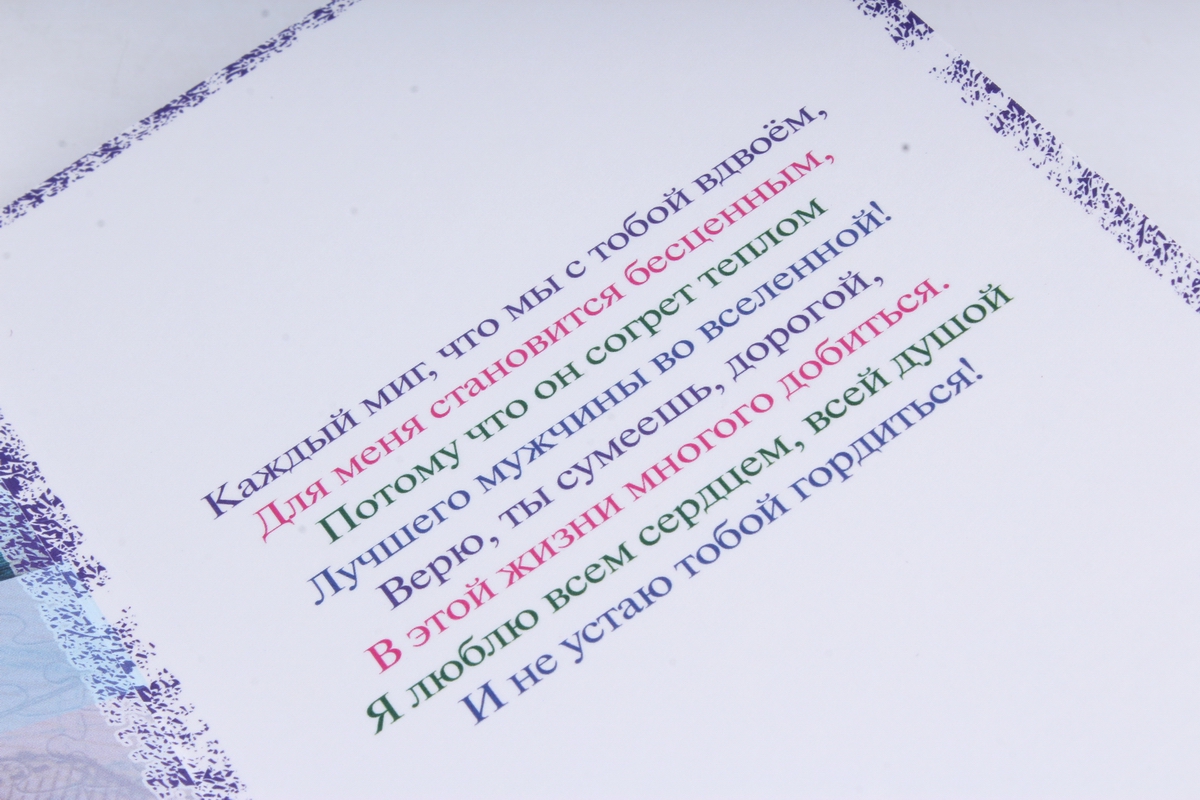 Каждый миг, что мы с тобой вдвоём,
Для меня становится бесценным,
Потому что он согрет теплом
Лучшего мужчины во вселенной!
Верю, ты сумеешь, дорогой,
В этой жизни многого добиться.
Я люблю всем сердцем, всей душой
И не устаю тобой гордиться!